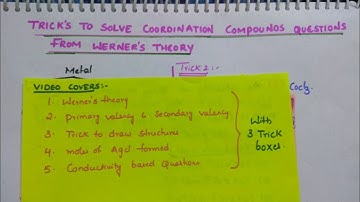 TRICK'S TO SOLVE COORDINATION COMPOUNDS QUESTIONS
FROM WERNER'S THEORY
Metal
Trick 2:-
VIDEO COVERS:-
1. Werner's theory
2. primary valency & Secondary valency
3. Trick to draw structures
4. moles of Agcl formed
5. Conductivity based Questions
With
3 Trick
boxes
CoCl3